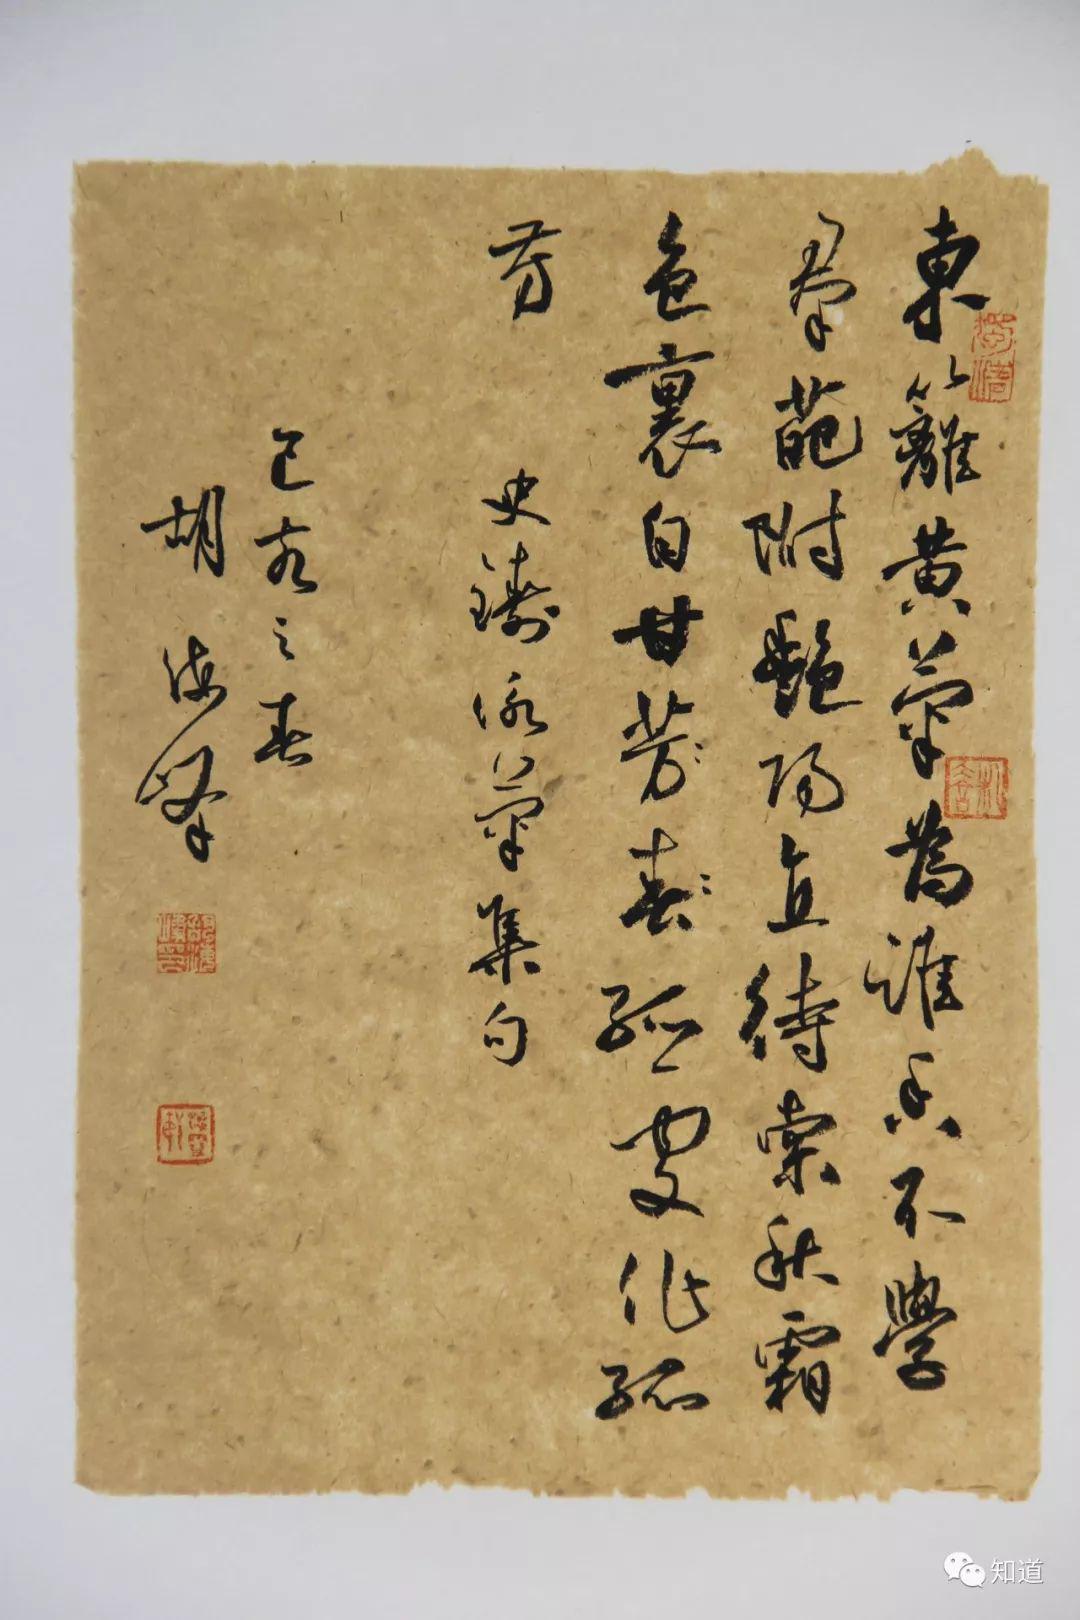 東籬黄菊為誰香不學
羣葩附艷陽直待素秋霜
色裏自甘芳春孤處作孤
芳 史鑄詠菊集句
己亥之春
胡海峯
知道